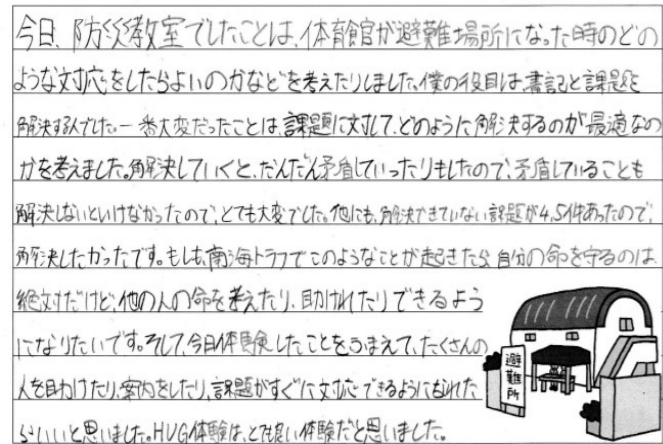 今日、防災教室でしたことは、体育館が避難場所になった時のどの
ような対応をしたらよいのかなどを考えたりしました。僕の役目は、書記と課題を
解決する人でした。一番大変だったことは、課題に対して、どのように解決するのが最適なの
かを考えました。解決していくと、だんだん矛盾していったりもしたので、矛盾していることも
解決しないといけなかったので、とても大変でした。他にも、解決できていない課題が4,5件あったので、
解決したかったです。もしも、南海トラフでこのようなことが起きたら、自分の命を守るのは
絶対だけど、他の人の命を考えたり、助けれたりできるよう
になりたいです。そして、今日体験したことをふまえて、たくさんの
人を助けたり、案内をしたり、課題がすぐに対応できるようになれた
らいいと思いました。HUG体験は、とても良い体験だと思いました。
避難所